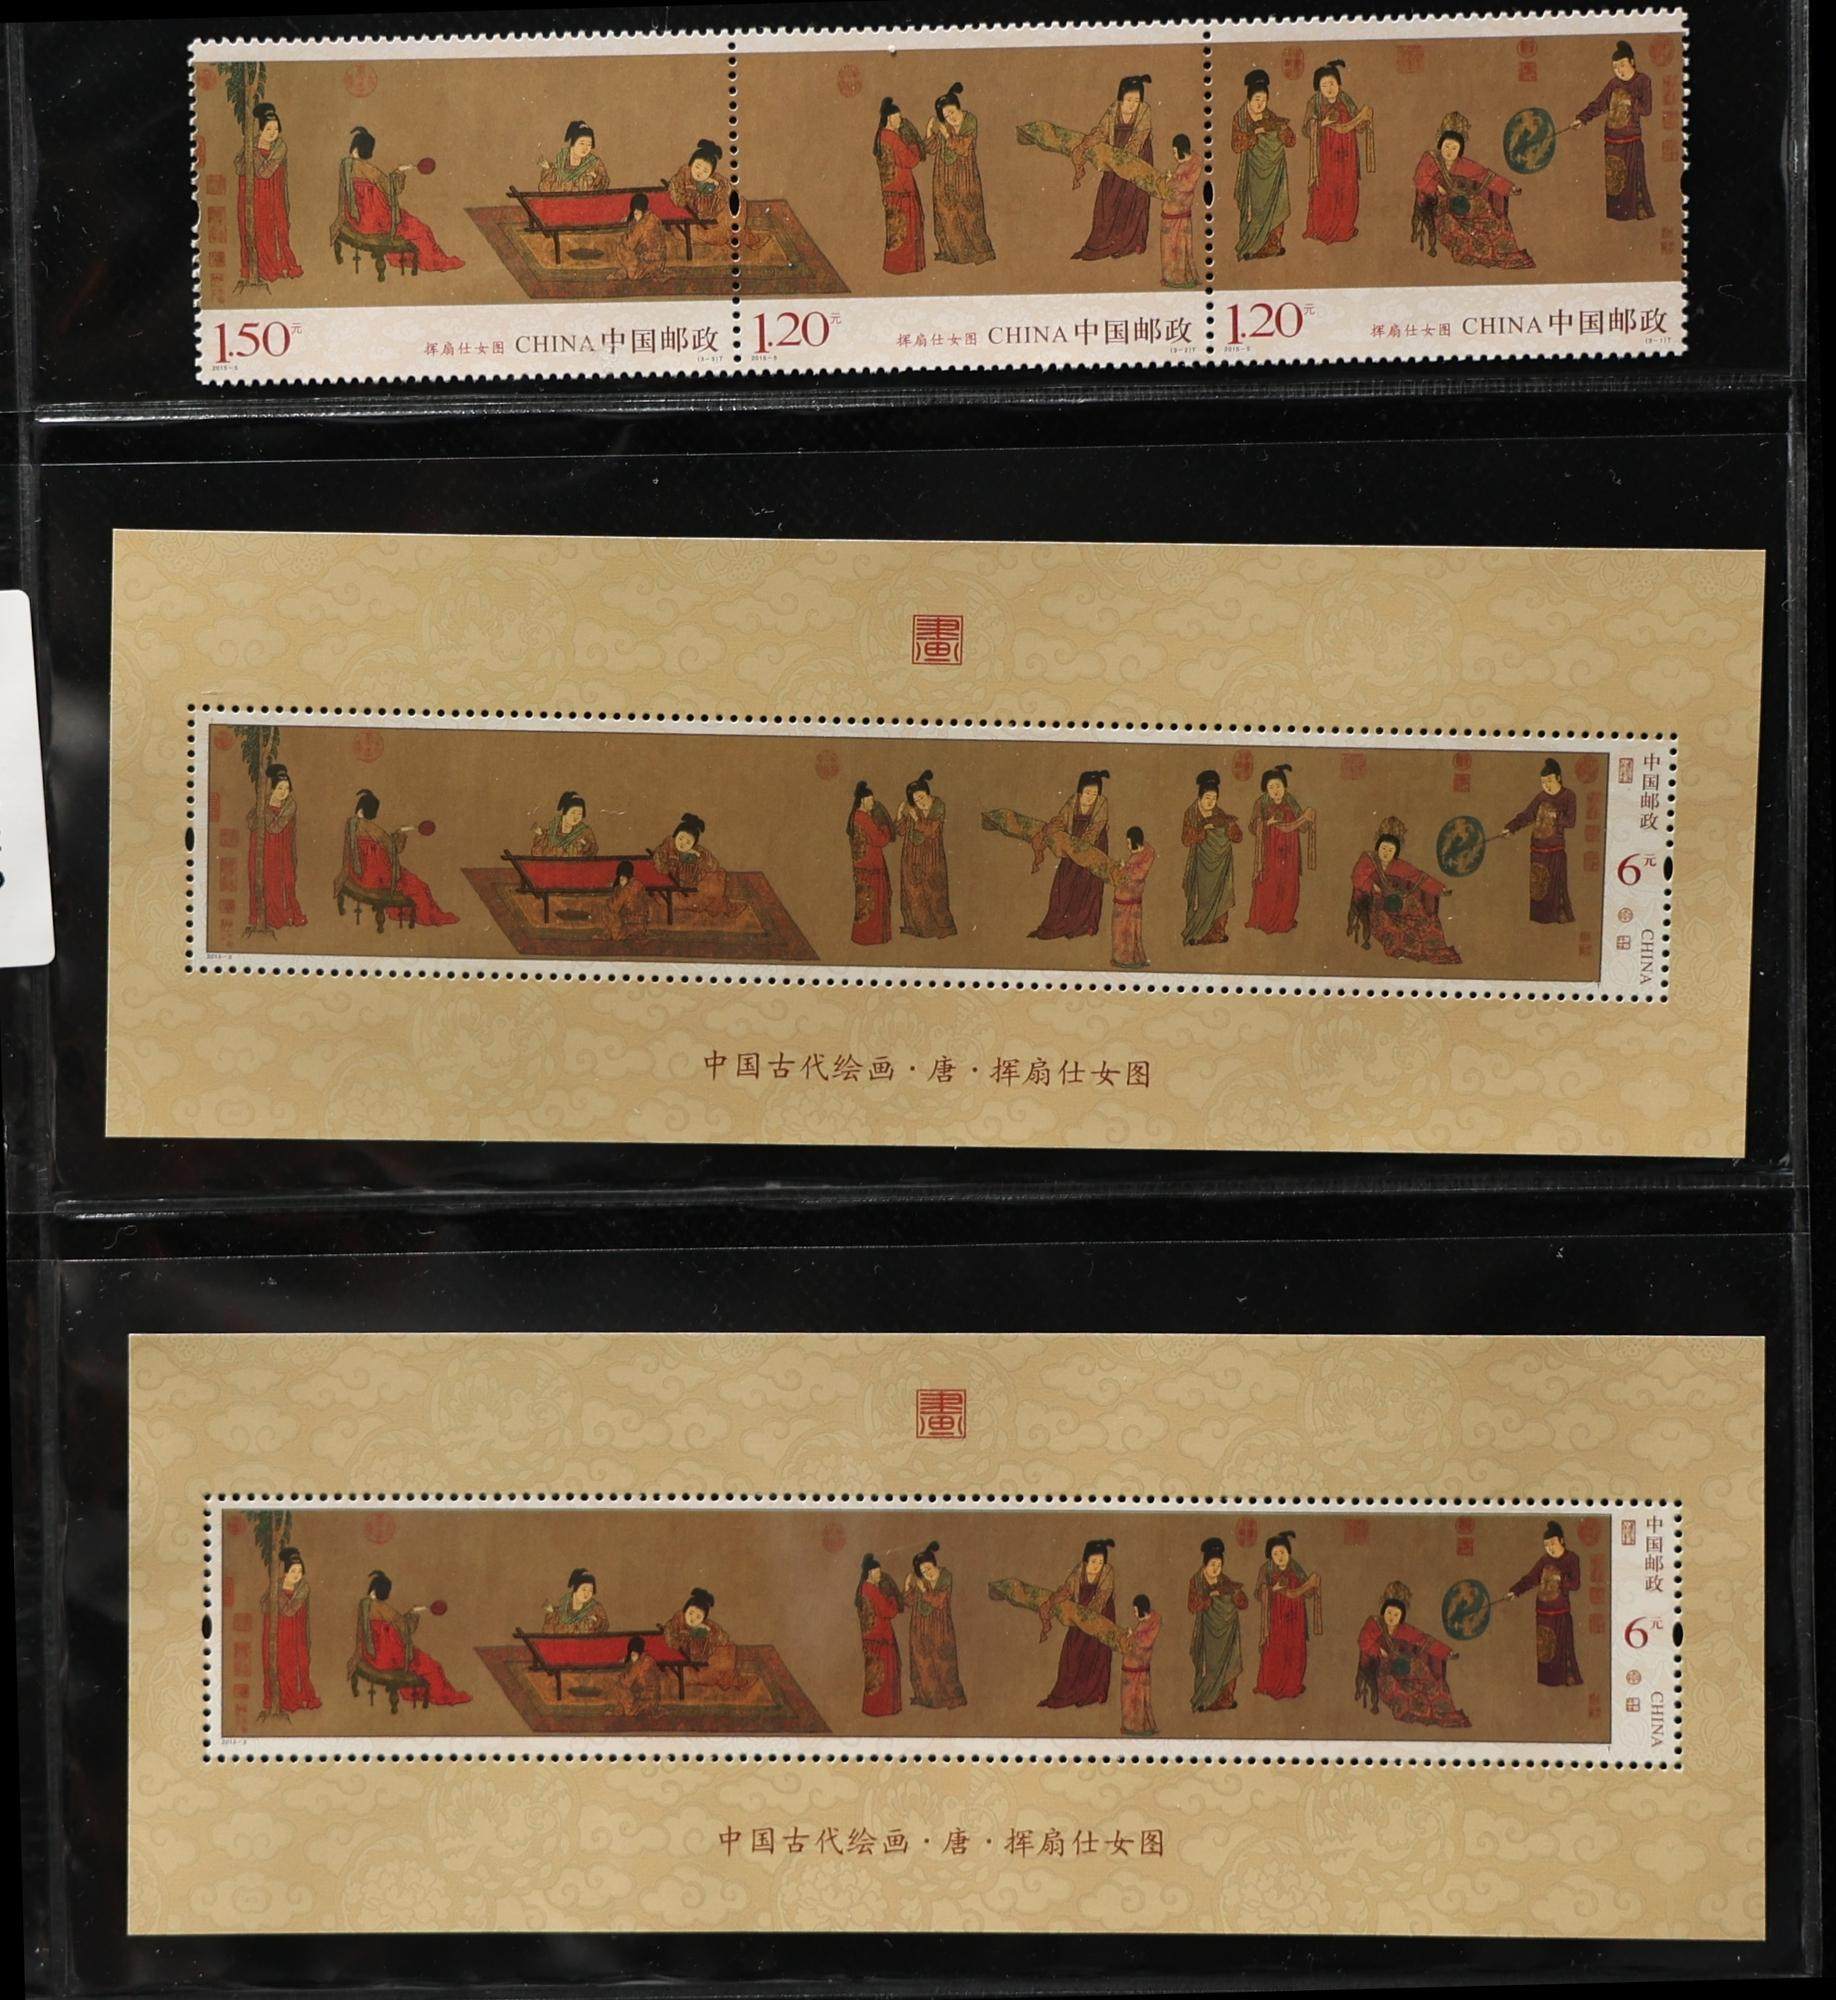 1.50元 挥扇仕女图 CHINA中国邮政
2015-5 (3-3)T
1.20元 挥扇仕女图 CHINA中国邮政
2015-5 (3-2)T
1.20元 挥扇仕女图 CHINA中国邮政
2015-5 (3-1)T
畫
中国邮政
6元
CHINA
中国古代绘画·唐·挥扇仕女图
畫
中国邮政
6元
CHINA
中国古代绘画·唐·挥扇仕女图